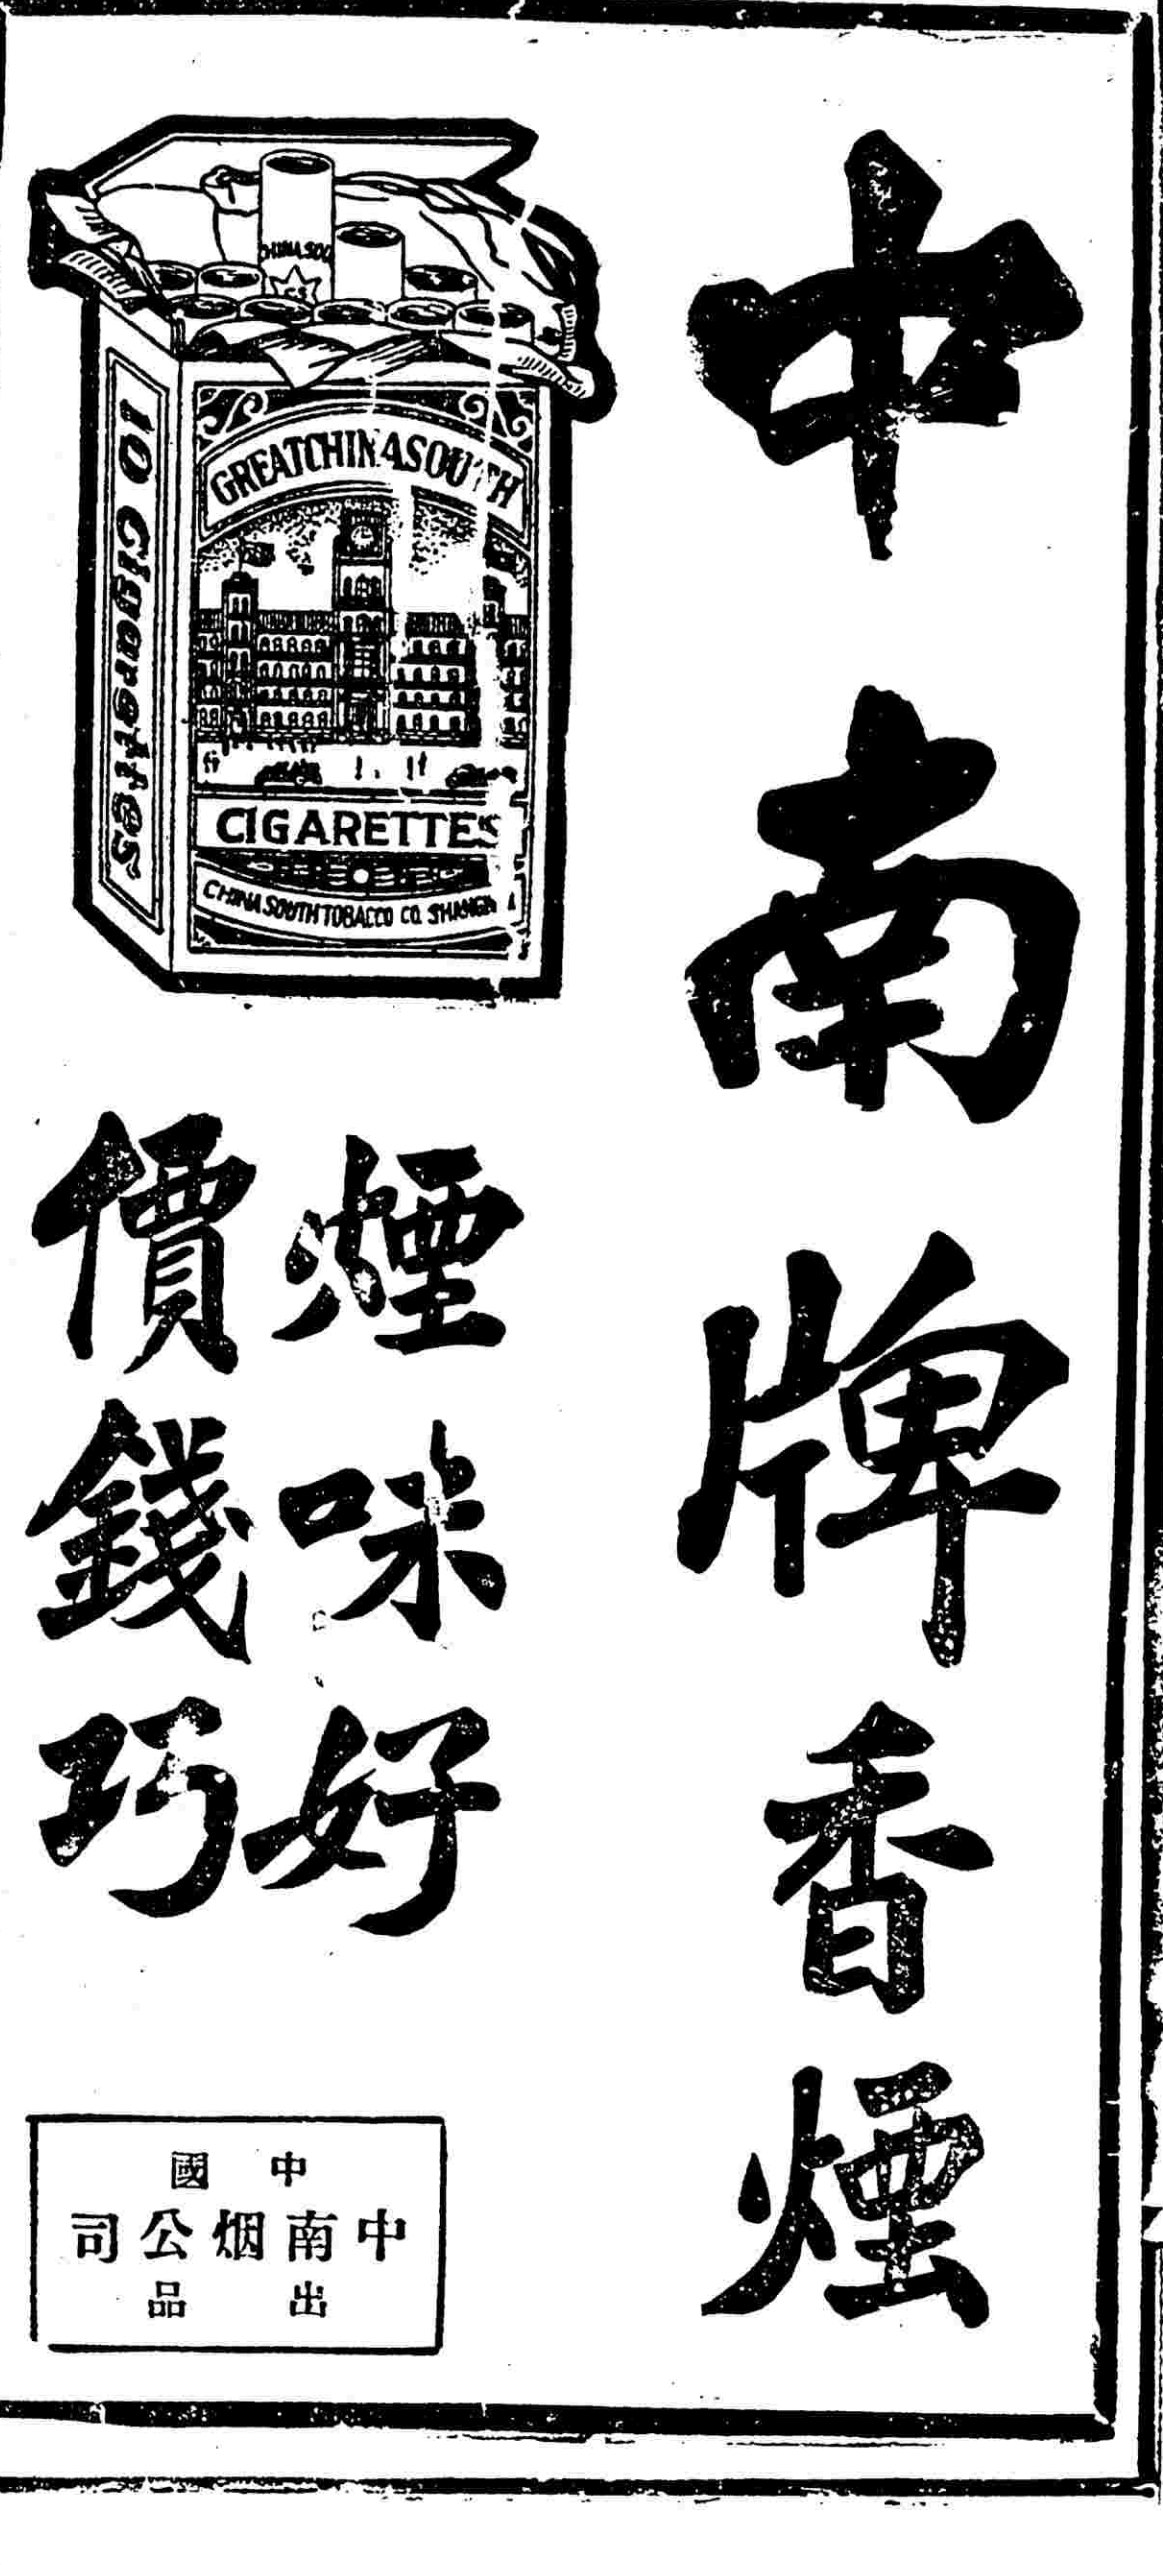 中南牌香煙
煙味好
價錢巧
CHINA SOU
10 Cigarettes
GREAT CHINA SOUTH
CIGARETTES
CHINA SOUTH TOBACCO CO. SHANGH
中國
中南烟公司
出品